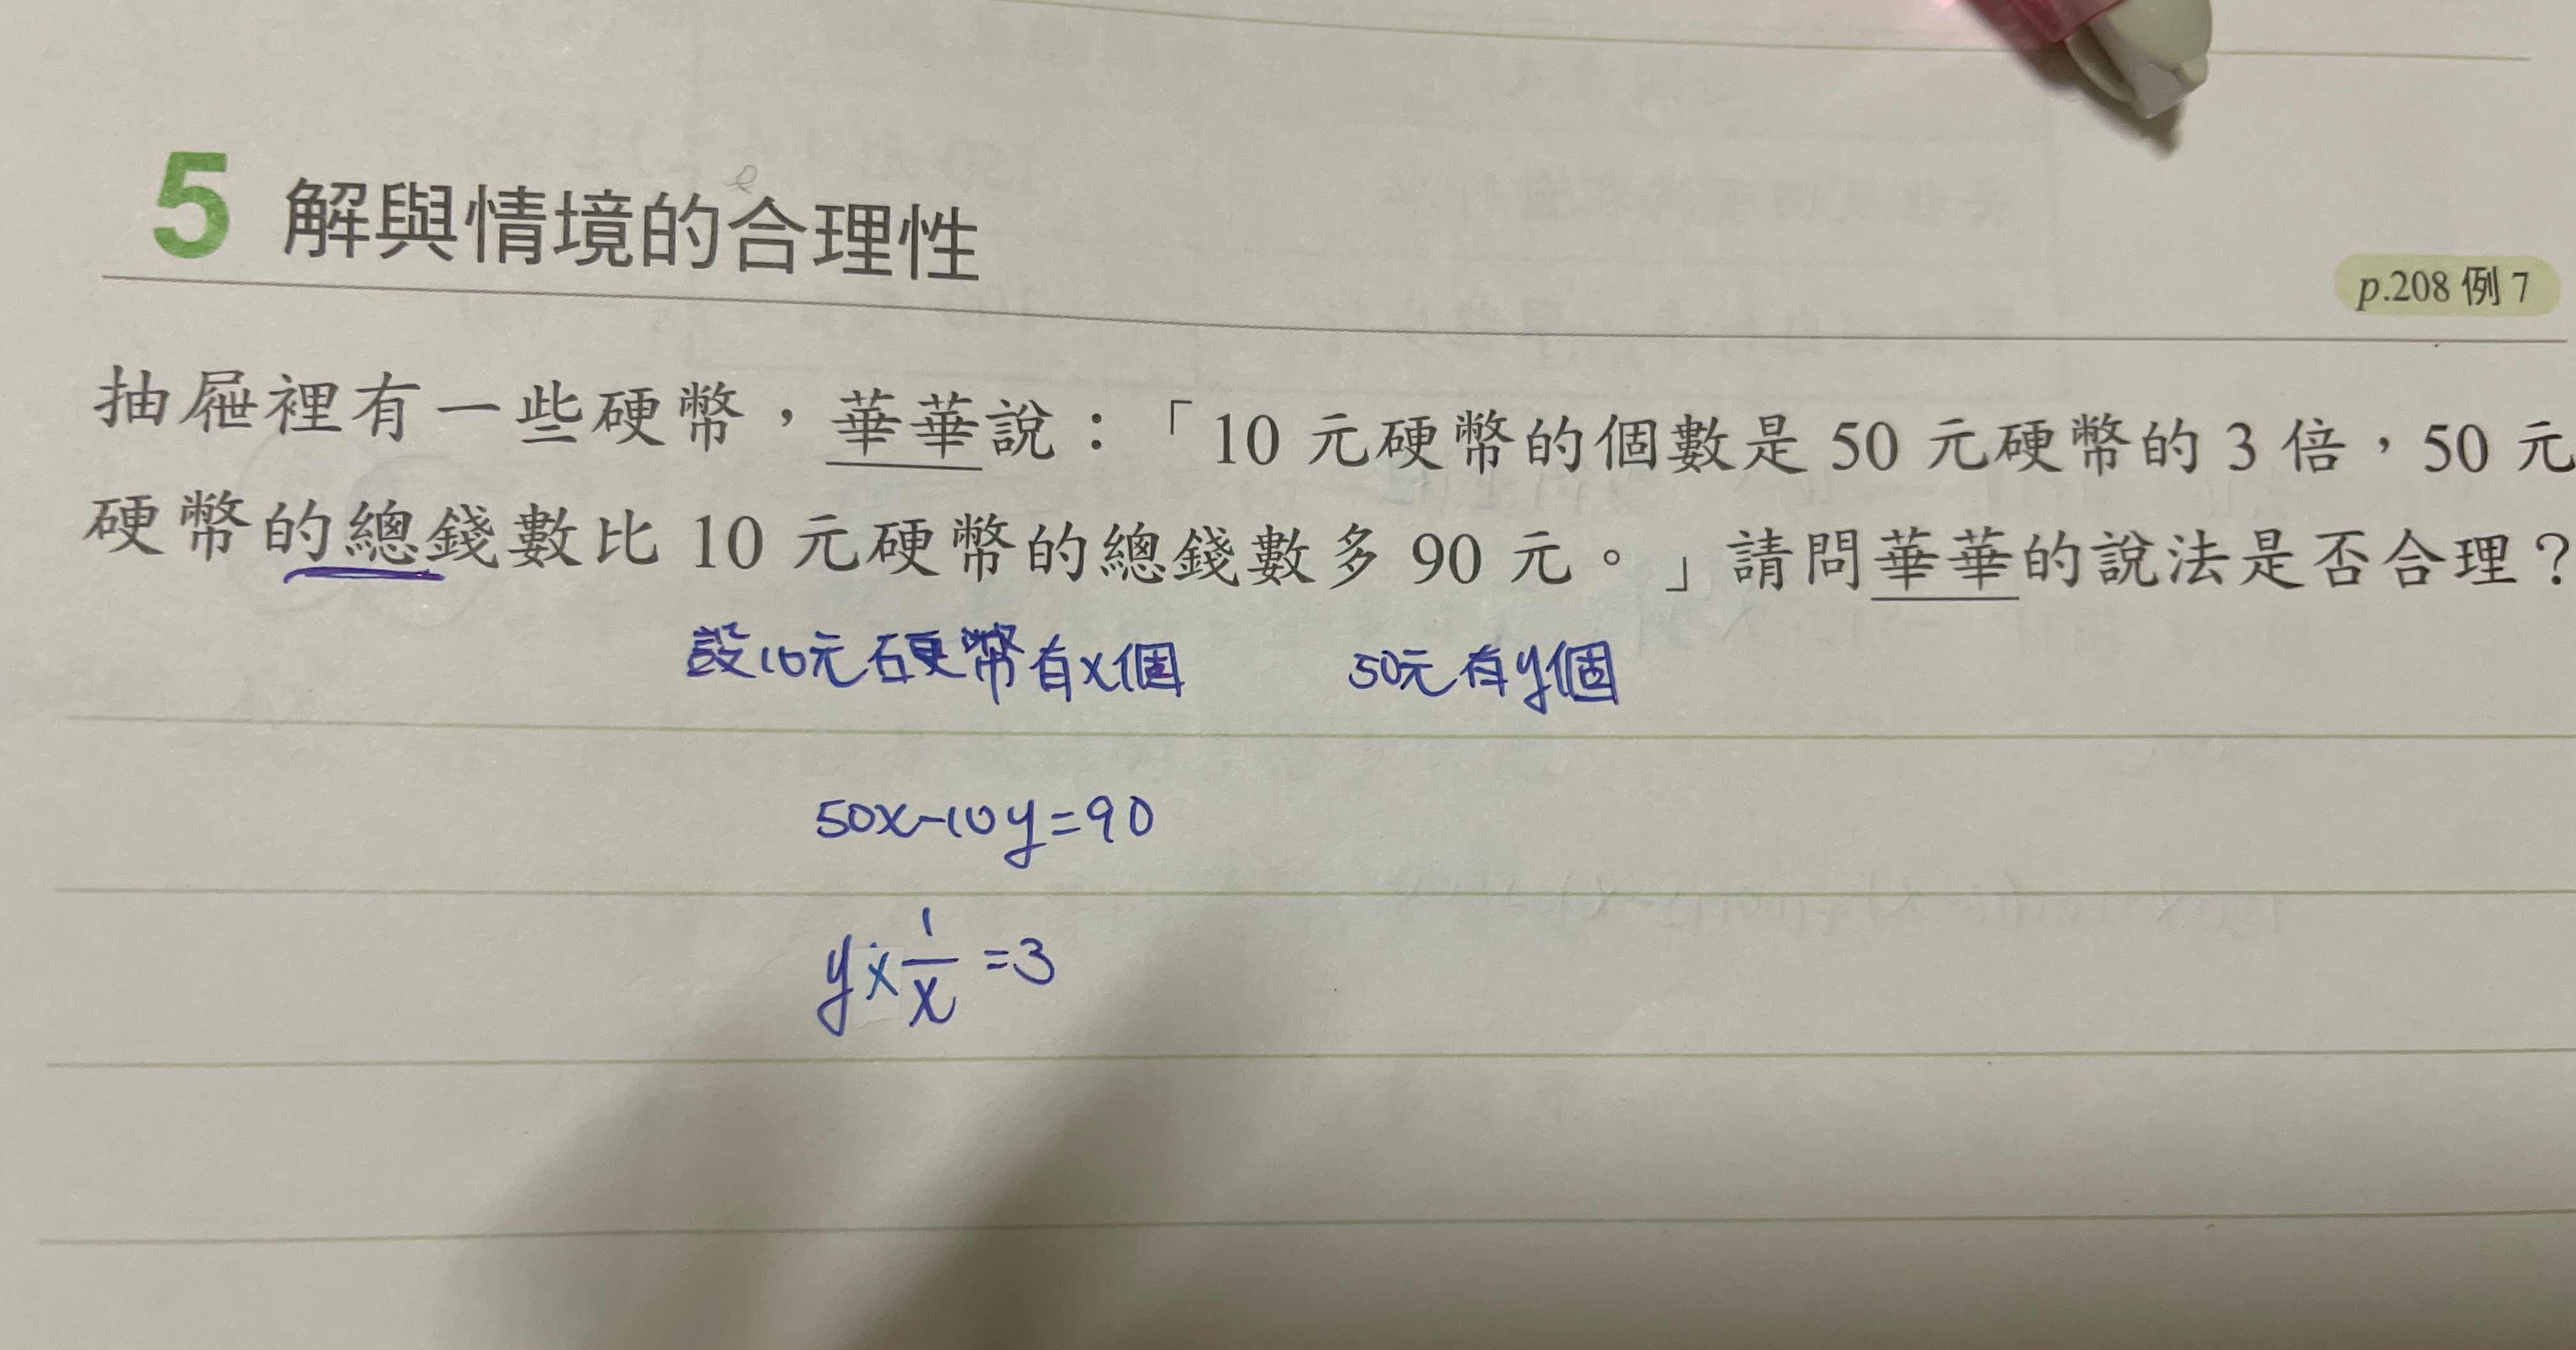 5 解與情境的合理性
p.208 例 7
抽屜裡有一些硬幣，華華說：「10 元硬幣的個數是 50 元硬幣的 3 倍，50 元
硬幣的總錢數比 10 元硬幣的總錢數多 90 元。」請問華華的說法是否合理？
設10元硬幣有x個 50元有y個
50x-10y=90
y×1/x=3